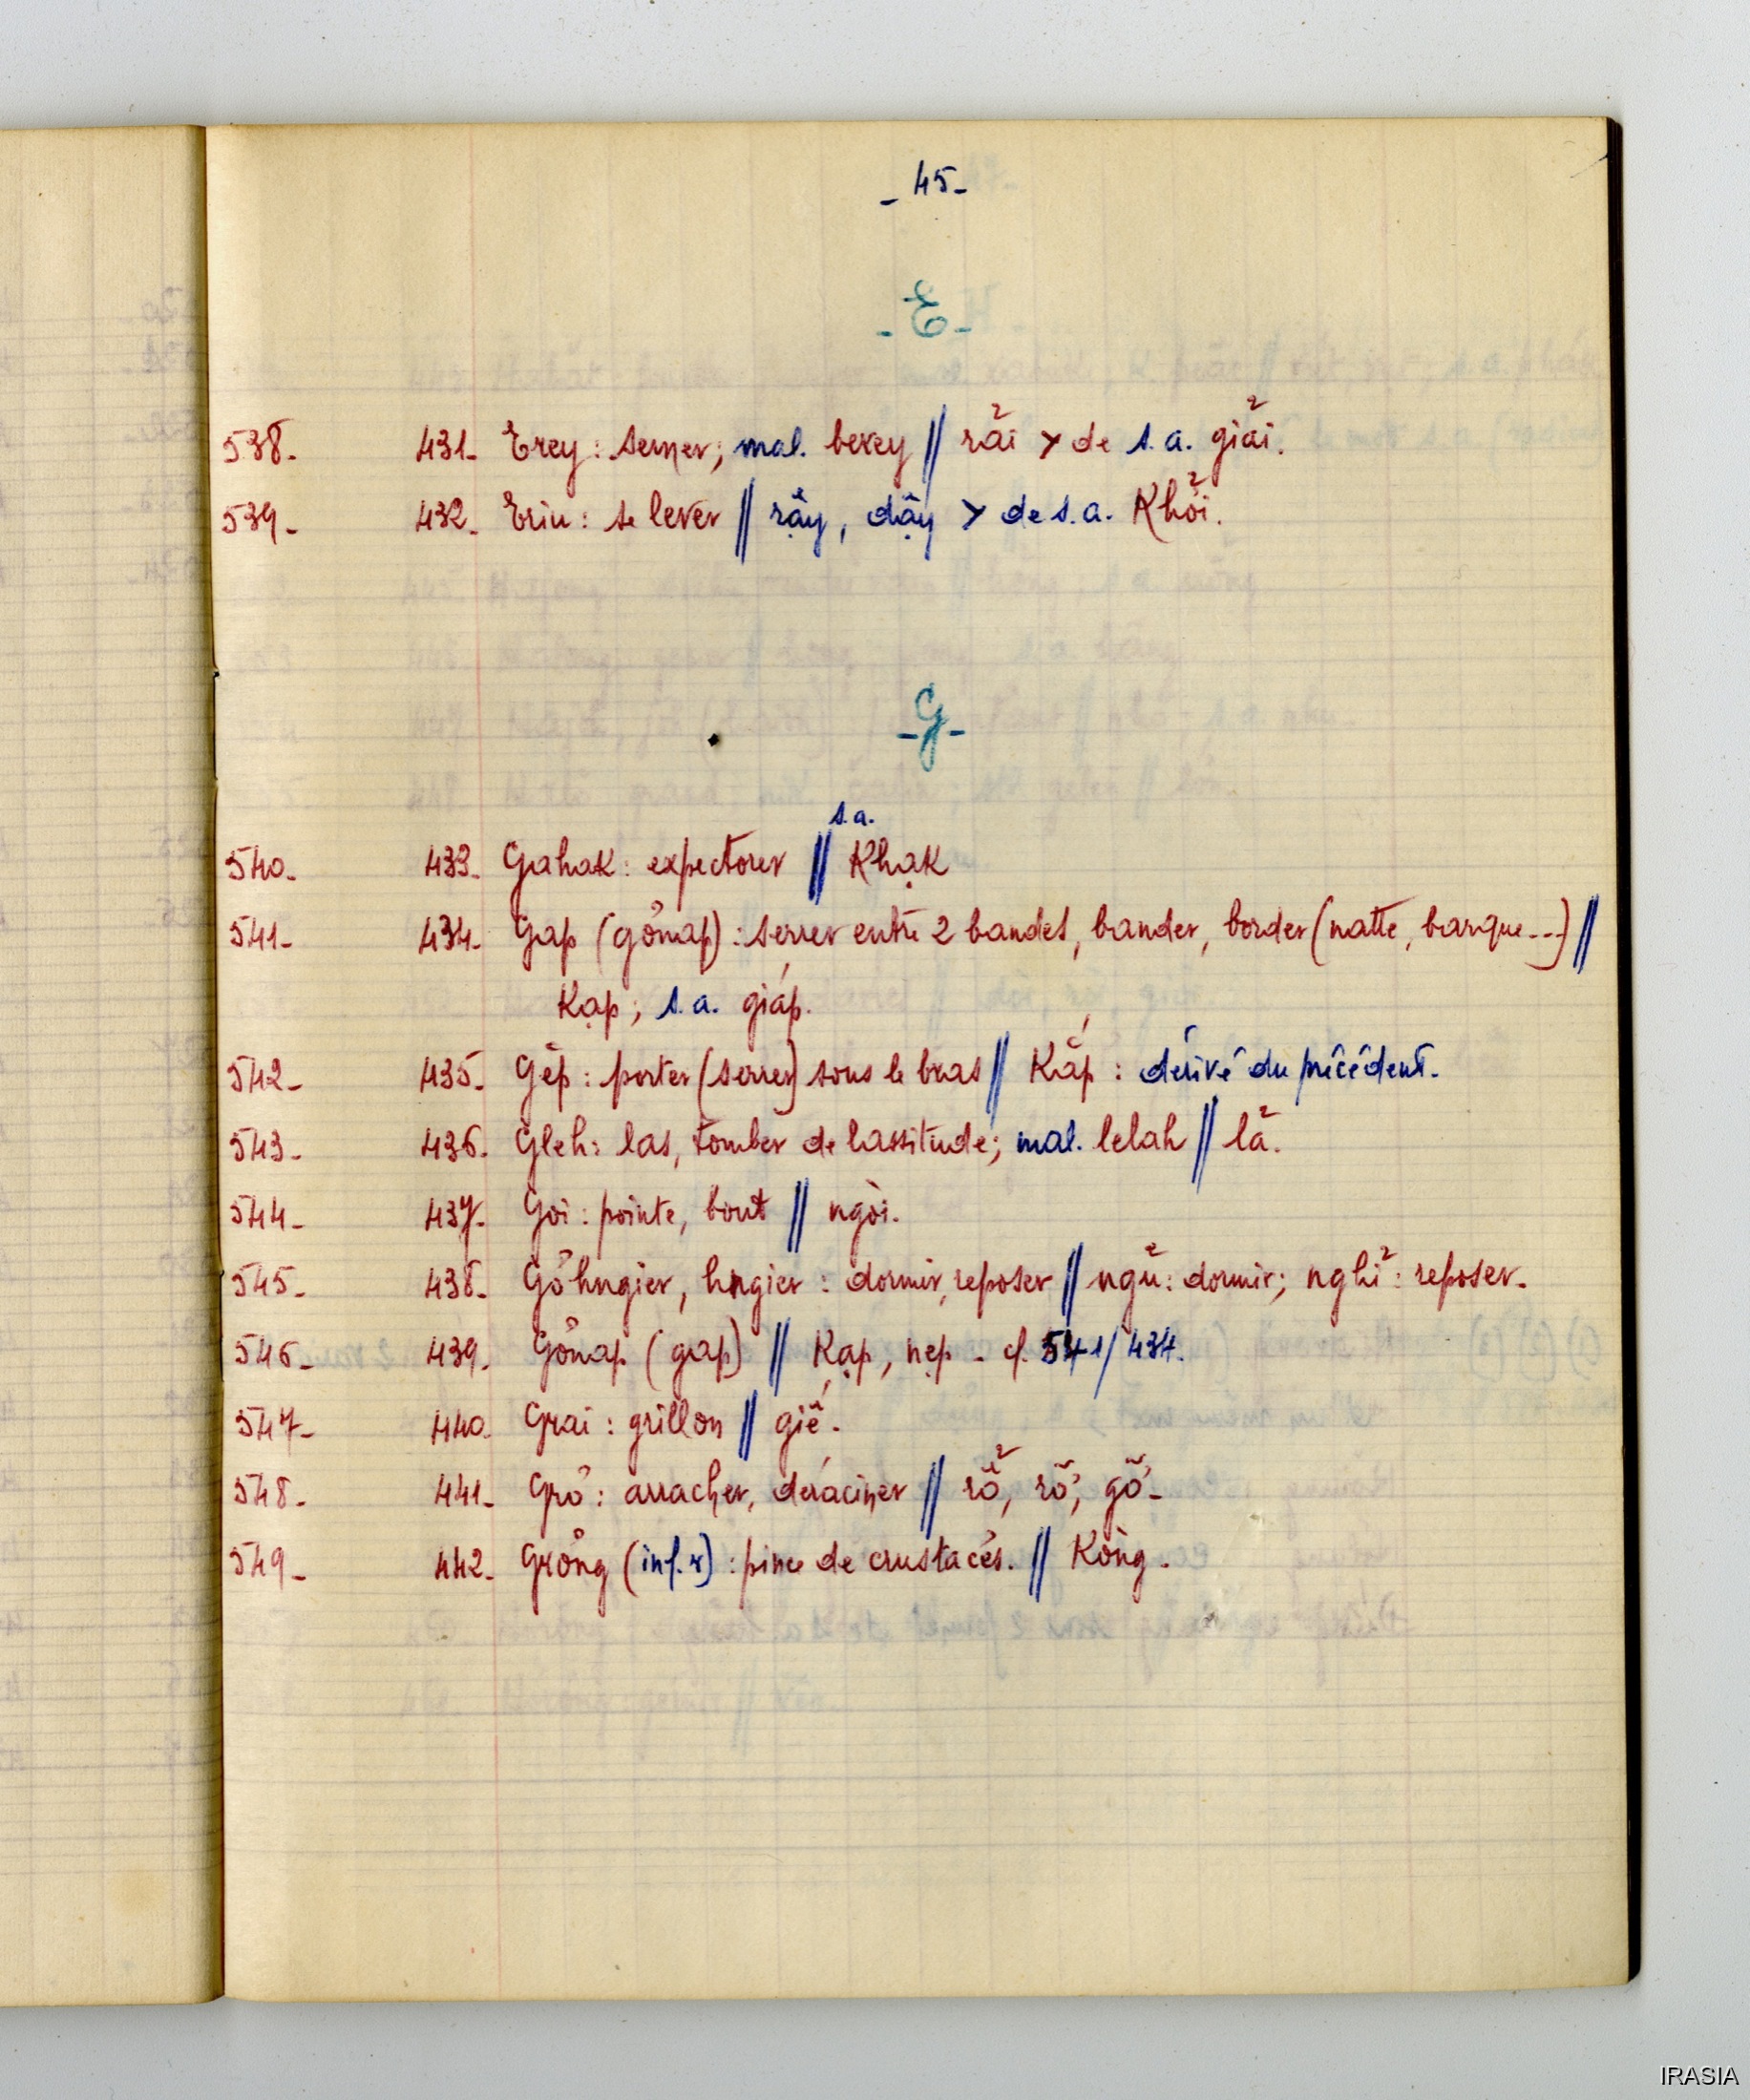 - 45 -
- E -
538. 431. Erey : semer; mal. berey // rải > de s.a. giải.
539. 432. Eriu : se lever // rậy, dậy > de s.a. Khởi.
- G -
s.a.
540. 433. Gahak : expectorer // Khạk
541. 434. Gap (gơnap) : serrer entre 2 bandes, bander, border (natte, barque...) //
Kạp; s.a. giáp.
542. 435. Gĕp : porter (serrer) sous le bras // Kắp : dérivé du précédent.
543. 436. Gleh : las, tomber de lassitude; mal. lelah // lả.
544. 437. Goi : pointe, bout // ngòi.
545. 438. Gơhngier, hngier : dormir, reposer // ngủ : dormir; nghỉ : reposer.
546. 439. Gơnap (gap) // Kạp, nẹp - cf. 541/434.
547. 440. Grai : grillon // giế.
548. 441. Grơ : arracher, déraciner // rổ, rỡ, gỡ.
549. 442. Grơng (inf. r) : pince de crustacés. // Kòng.
IRASIA